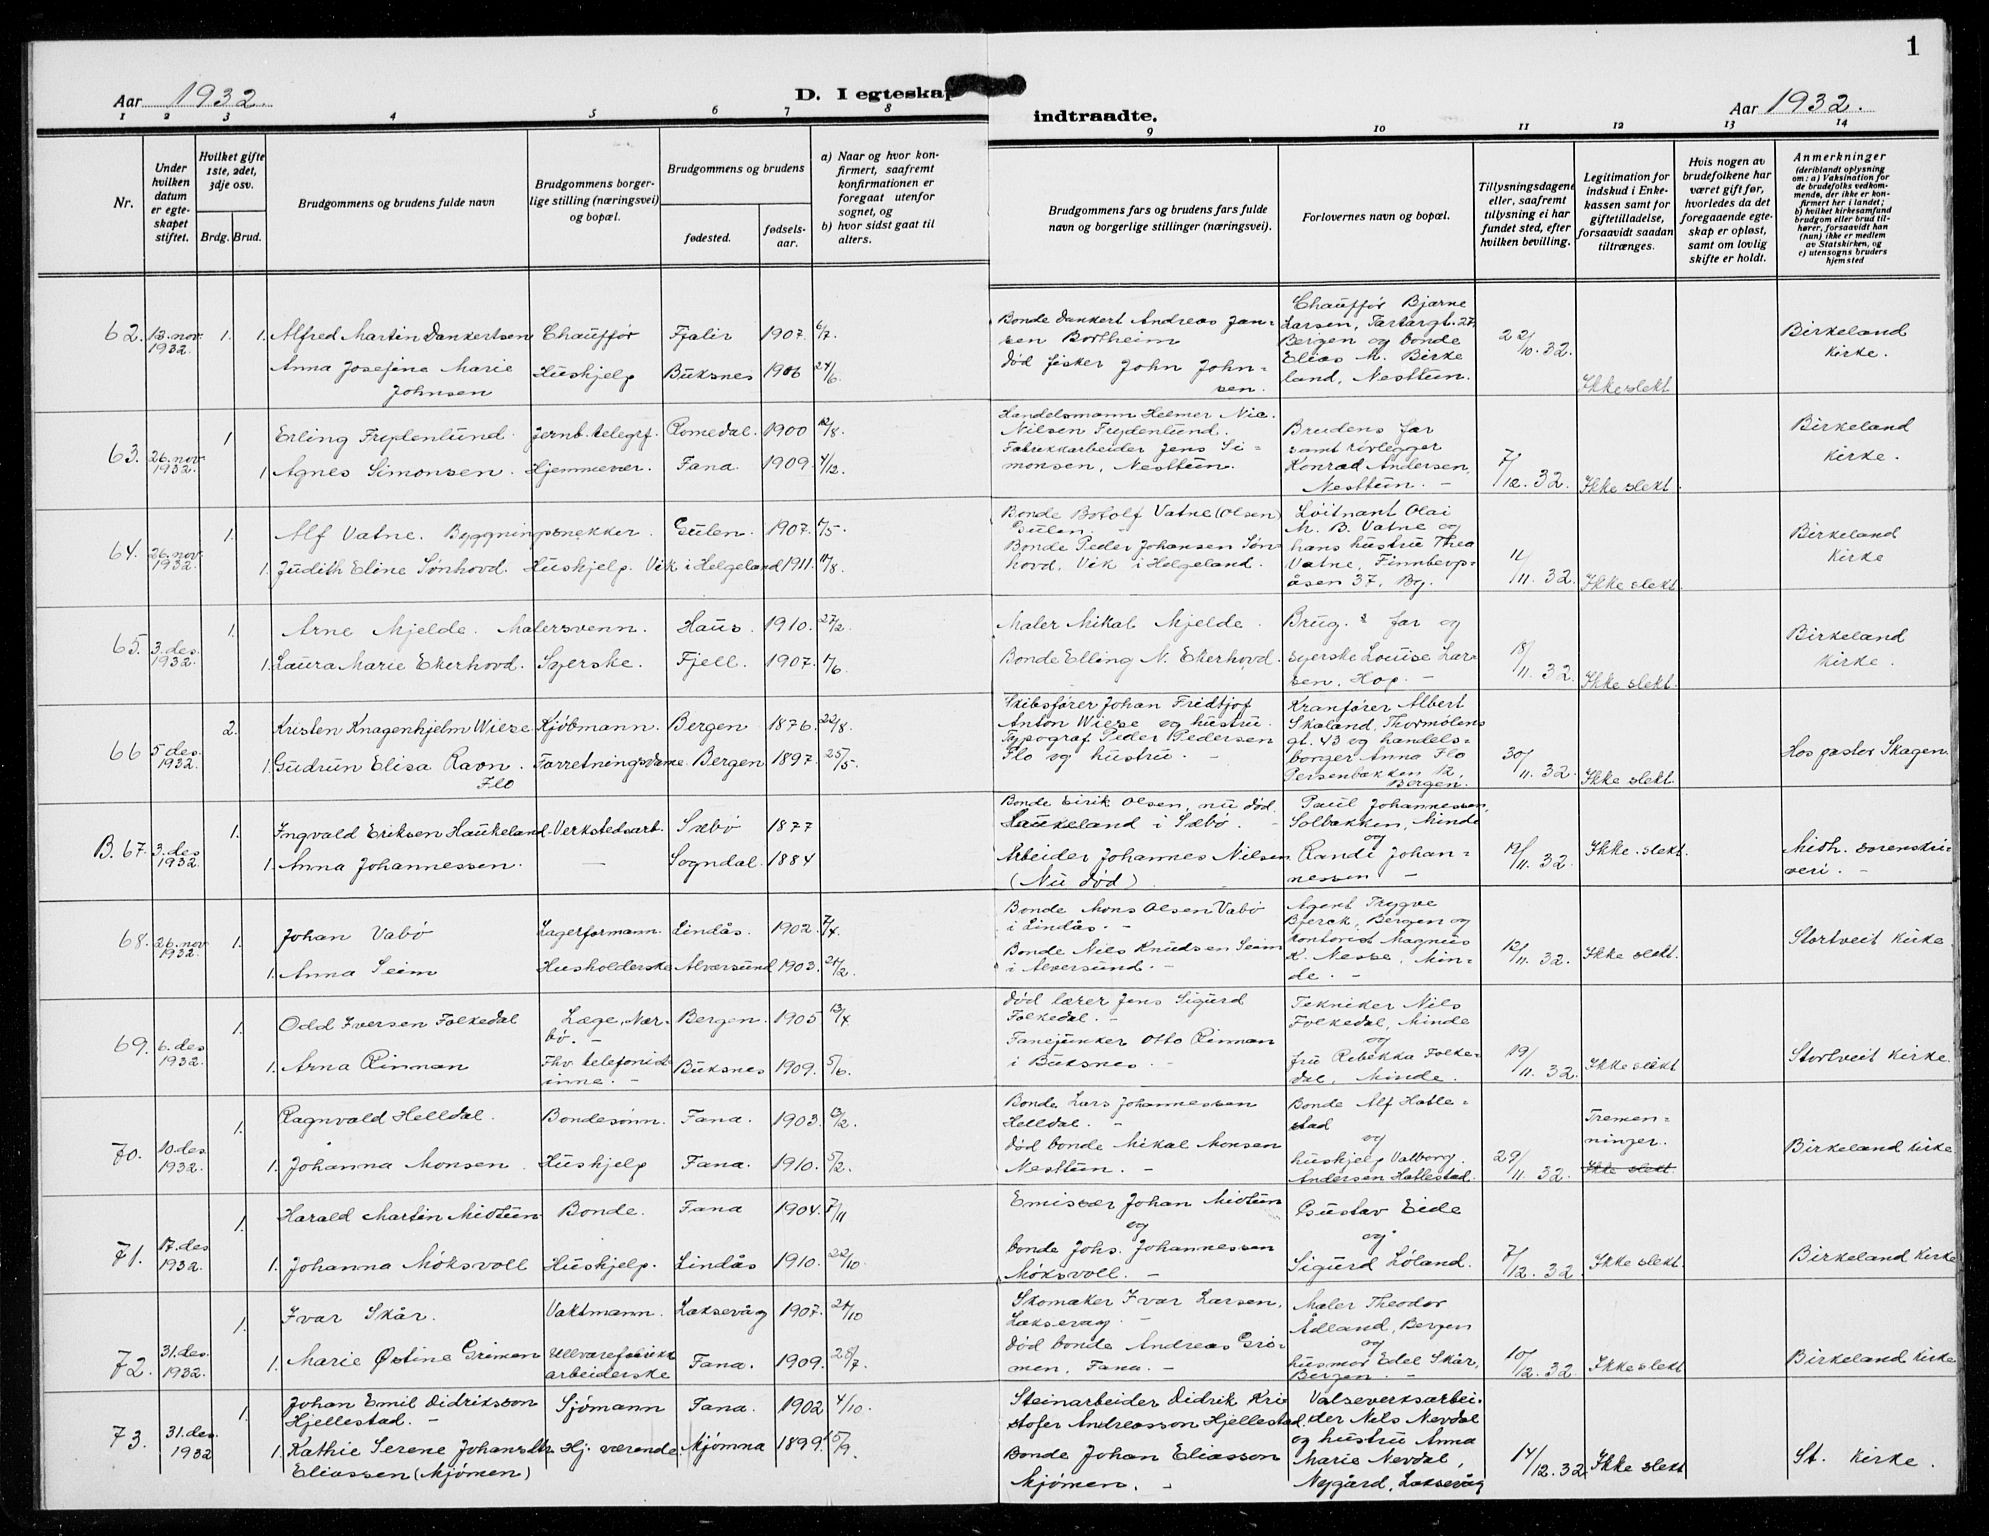 1
Aar 1932. D. I egteskap indtraadte. Aar 1932.
1 2 3 4 5 6 7 8 9 10 11 12 13 14
Nr.
Under hvilken datum er egteskapet stiftet.
Hvilket gifte 1ste, 2det, 3dje osv.
Brdg. Brud.
Brudgommens og brudens fulde navn
Brudgommens borgerlige stilling (næringsvei) og bopæl.
Brudgommens og brudens
fødested.
fødselsaar.
a) Naar og hvor konfirmert, saafremt konfirmationen er foregaat utenfor sognet, og
b) hvor sidst gaat til alters.
Brudgommens fars og brudens fars fulde navn og borgerlige stillinger (næringsvei).
Forlovernes navn og bopæl.
Tillysningsdagene eller, saafremt tillysning ei har fundet sted, efter hvilken bevilling.
Legitimation for indskud i Enkekassen samt for giftetilladelse, forsaavidt saadan tiltrænges.
Hvis nogen av brudefolkene har været gift før, hvorledes da det foregaaende egteskap er opløst, samt om lovlig skifte er holdt.
Anmerkninger (deriblandt oplysning om: a) Vaksination for de brudefolks vedkommende, der ikke er konfirmert her i landet; b) hvilket kirkesamfund brudgom eller brud tilhører, forsaavidt han (hun) ikke er medlem av Statskirken, og c) utensogns bruders hjemsted
62. 13. nov. 1932. 1. 1. Alfred Martin Dankertsen Chauffør Fjalir 1907. 6/7.
Anna Josefine Marie Johnsen Hushjelp Buksnes 1906 24/6.
Bonde Dankert Andreas Jansen Bortheim
død fisker John Johnsen.
Chauffør Bjarne Larsen, Tartargt. 27 Bergen og bonde Elias M. Birkeland, Nesttun.
22/10. 32. Ikke slekt Birkeland Kirke.
63. 26. nov. 1932. 1 Erling Frydenlund. Jernb. telegrf. Romedal. 1900 12/8.
1 Agnes Simonsen. Hjemmevær. Fana. 1909. 4/12.
Handelsmann Helmer Nic. Nilsen Frydenlund.
Fabrikkarbeider Jens Simonsen, Nesttun.
Brudens far samt rørlegger Konrad Andersen, Nesttun. -
7/12. 32. Ikke slekt. Birkeland Kirke.
64. 26. nov. 1932. 1. Alf Vatne. Byggningssnekker. Gulen. 1907. /5.
1. Judith Eline Sønhovd. Hushjelp. Vik i Helgeland 1911. /8.
Bonde Botolf Vatne (Olsen) Gulen.
Bonde Peder Johansen Sønhovd, Vik i Helgeland.
Løitnant Olai M. B. Vatne og hans hustru Thea Vatne, Finnbergsåsen 37, Bg.
11/11. 32. Ikke slekt. Birkeland Kirke
65. 3. des. 1932. 1. Arne Mjelde. Malersvenn. Haus. 1910. 27/2.
1. Laura Marie Ekerhovd. Syerske. Fjell. 1907. /6.
Maler Mikal Mjelde.
Bonde Elling N. Ekerhovd.
Brug. s far og syerske Louise Larsen, Hop. -
18/11. 32. Ikke slekt. Birkeland Kirke.
66 5. des. 1932. 2. Kristen Knagenhjelm Wiese Kjøbmann. Bergen 1876. 22/8.
1. Gudrun Elisa Ravn Flo. Forretningsdame. Bergen 1897. 25/5.
Skibsfører Johan Fridtjof Anton Wiese og hustru.
Typograf Peder Pedersen Flo og hustru. -
Kranfører Albert Skaland, Thormølens gt. 43 og handelsborger Anna Flo Persenbakken 12, Bergen.
30/11. 32. Ikke slekt. Hos pastor Skagen.
B. 67. 3. des. 1932. 1. Ingvald Eriksen Haukeland Verkstedsarb. Sæbø 1877
1. Anna Johannessen. - Sogndal. 1884
Bonde Eirik Olsen, nu død Haukeland i Sæbø. -
Arbeider Johannes Nilsen (Nu død)
Paul Johannessen, Solbakken, Minde og Randi Johannessen -
19/11. 32. Ikke. slekt. Midh. sorenskriveri. -
68. 26. nov. 1932. 1. Johan Vabø Lagerformann. Lindås. 1902.
1. Anna Seim Husholderske Alversund 1903. 24/2.
Bonde Mons Olsen Vabø i Lindås. -
Bonde Nils Knudsen Seim i Alversund. -
Agent Trygve Bjerck, Bergen og kontorist Magnus K. Nesse, Minde. -
12/11. 32. Ikke slekt. Stortveit Kirke.
69. 6. des. 1932. 1. Odd Iversen Folkedal Læge, Nærbø. - Bergen. 1905 13/X
1. Arna Rinnan Fhv. telefonistinne. - Buksnes 1909. 5/6.
død lærer Jens Sigurd Folkedal. -
Fanejunker Otto Rinnan i Buksnes. -
Tekniker Nils Folkedal, Minde og fru Rebekka Folkedal, Minde.
19/11. 32. Ikke slekt Stortveit Kirke.
70. 10. des. 1932. 1. Ragnvald Helldal. Bondesønn. Fana. 1903. 13/2.
1. Johanna Monsen. Hushjelp Fana. 1910. 5/2.
Bonde Lars Johannessen Helldal. -
død bonde Mikal Monsen Nesttun. -
Bonde Alf Hatlestad og hushjelp Valborg Andersen Hatlestad.
29/11. 32. Tremenninger. Ikke slekt Birkeland Kirke
71. 17. des. 1932. 1. Harald Martin Midtun Bonde. Fana 1904. 7/11
1. Johanna Moksvoll Hushjelp. Lindås 1910. 22/10
Emissær Johan Midtun og
bonde Johs. Johannessen Moksvoll. -
Gustav Eide og Sigurd Loland.
7/12. 32. Ikke slekt. Birkeland Kirke
72. 31. des. 1932. 1. Ivar Skår. Vaktmann. Laksevåg 1907. 21/10
1. Marie Østine Grimen Ullvarefabrikkarbeiderske Fana. 1909. 28/7.
Skomaker Ivar Larsen, Laksevåg. -
død bonde Andreas Grimen, Fana. -
Maler Theodor Ådland, Bergen og husmor Edel Skår, Bergen.
10/12. 32. Ikke slekt Birkeland Kirke
73. 31. des. 1932 1. Johan Emil Didriksson Hjellestad. - Sjømann Fana. 1902 4/10.
1. Kathie Serene Johansdtr. Eliassen (Mjømen) Hj. værende. Mjømna 1899. 15/9.
Steinarbeider Didrik Kristofer Andreasson Hjellestad.
Bonde Johan Eliasson Mjømen. -
Valseverksarbeider Nils Nevdal og hustru Anna Marie Nevdal, Nygård, Laksevåg
14/12. 32. Ikke slekt St. Kirke.